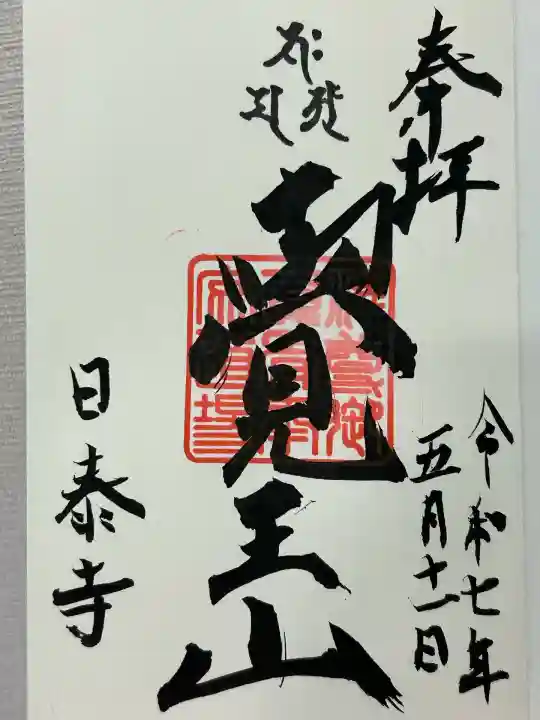 奉拝
覺王山
令和七年
五月十一日
日泰寺